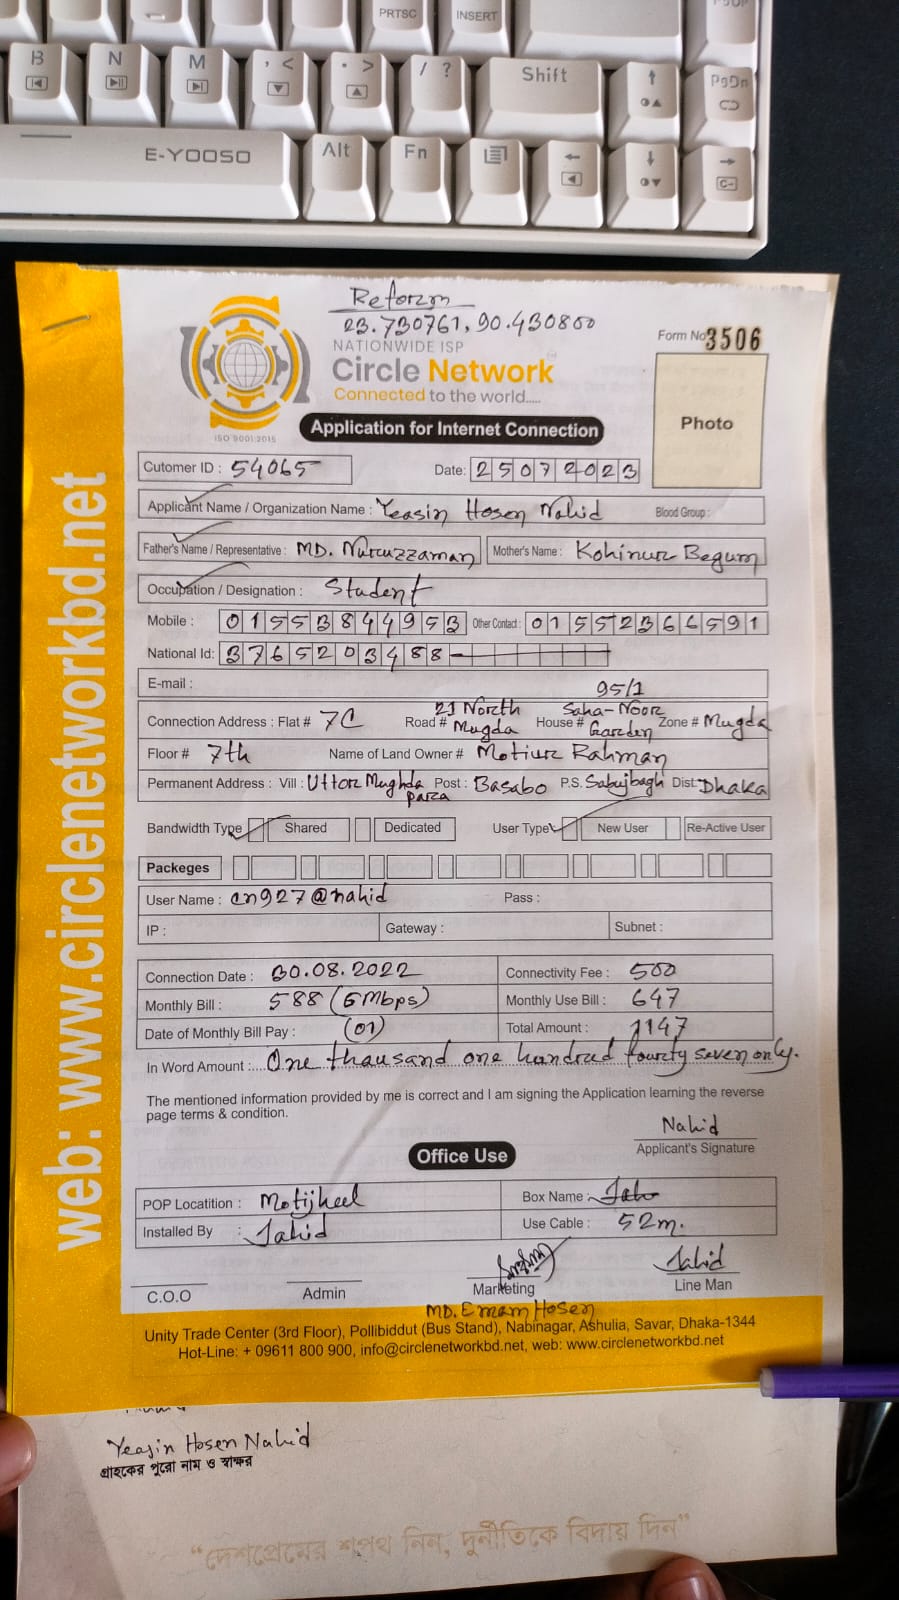 PRTSC INSERT PgUp
B N M , < . > / ? Shift PgDn
E-YOOSO Alt Fn
Reform
23.730761, 90.430800
NATIONWIDE ISP
Form No 3506
Circle Network
Connected to the world.....
ISO 9001:2015
Photo
Application for Internet Connection
Cutomer ID : 54065 Date: 25072023
Applicant Name / Organization Name : Yeasin Hosen Nahid Blood Group :
Father's Name / Representative : MD. Nuruzzaman Mother's Name : Kohinur Begum
Occupation / Designation : Student
Mobile : 01553844953 Other Contact : 01552366591
National Id: 3765203488
E-mail :
95/1
Connection Address : Flat # 7C Road # 21 North Mugda House # Saha-Noor Garden Zone # Mugda
Floor # 7th Name of Land Owner # Motiur Rahman
Permanent Address : Vill : Uttor Mughda para Post : Basabo P.S. Sabujbagh Dist: Dhaka
Bandwidth Type Shared Dedicated User Type New User Re-Active User
Packeges
User Name : cn927@nahid Pass :
IP : Gateway : Subnet :
Connection Date : 30.08.2022 Connectivity Fee : 500
Monthly Bill : 588 (5Mbps) Monthly Use Bill : 647
Date of Monthly Bill Pay : (01) Total Amount : 1147
In Word Amount :.... One thousand one hundred fourty seven only.
The mentioned information provided by me is correct and I am signing the Application learning the reverse
page terms & condition.
Nahid
Applicant's Signature
Office Use
POP Locatition : Motijheel Box Name :
Installed By : Jahid Use Cable : 52m.
Jahid
C.O.O Admin Marketing Line Man
MD. Emam Hosen
Unity Trade Center (3rd Floor), Pollibiddut (Bus Stand), Nabinagar, Ashulia, Savar, Dhaka-1344
Hot-Line: + 09611 800 900, info@circlenetworkbd.net, web: www.circlenetworkbd.net
web: www.circlenetworkbd.net
Yeasin Hosen Nahid
গ্রাহকের পুরো নাম ও স্বাক্ষর
“দেশপ্রেমের শপথ নিন, দুর্নীতিকে বিদায় দিন”